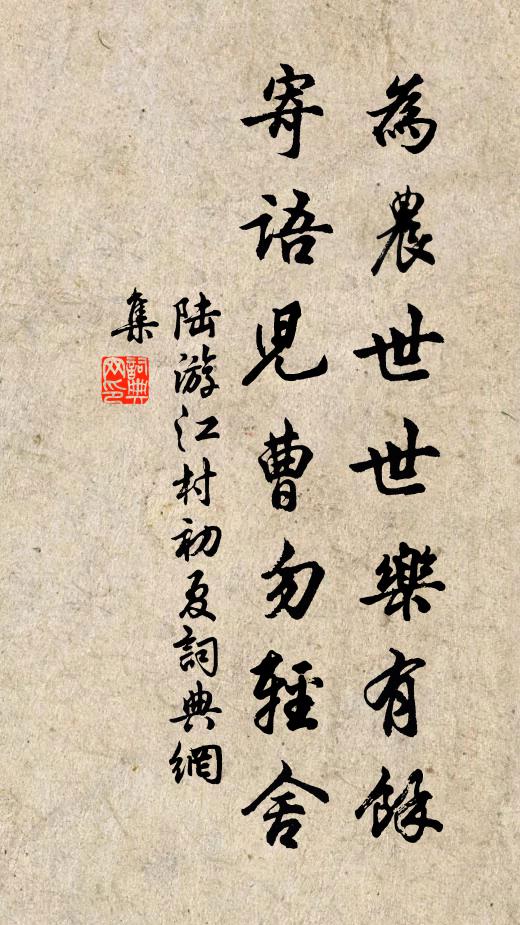 為農世世樂有餘
寄語兒曹勿輕舍
陸游江村初夏詞典網
集
詞典
网印